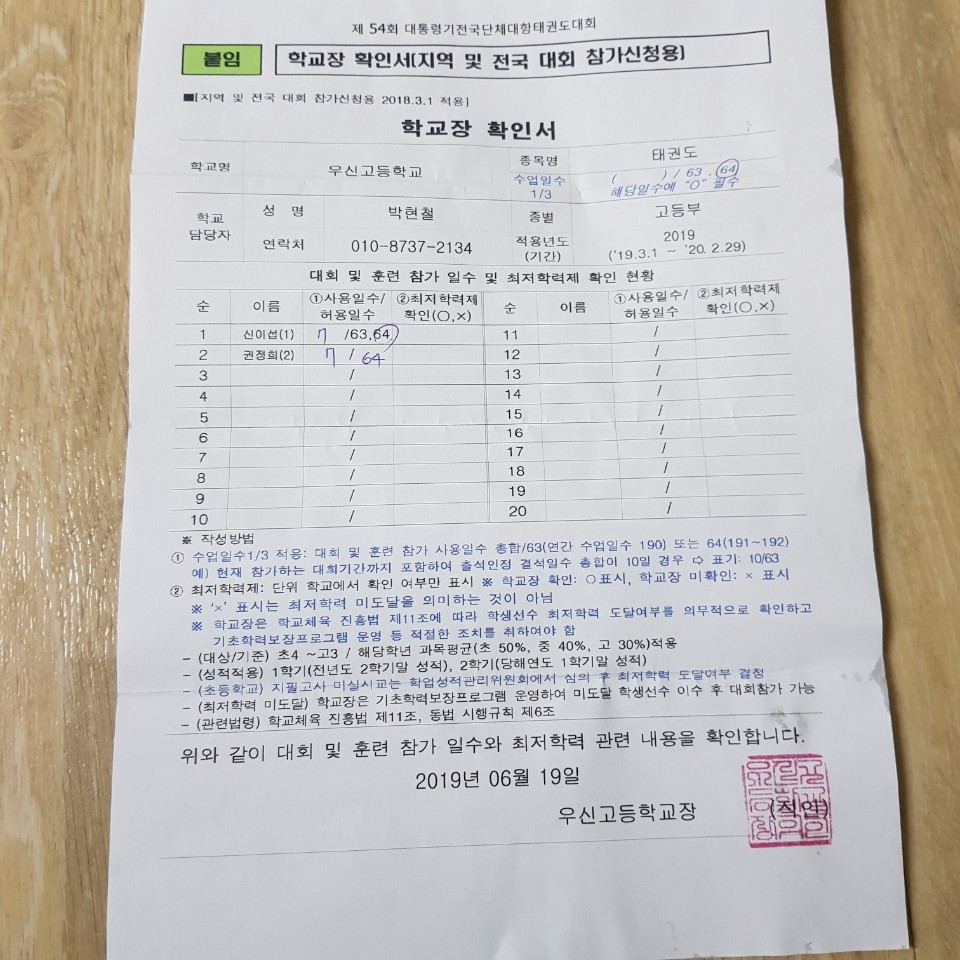 제 54회 대통령기전국단체대항태권도대회
붙임 학교장 확인서(지역 및 전국 대회 참가신청용)
■[지역 및 전국 대회 참가신청용 2018.3.1 적용]
학교장 확인서
학교명 우신고등학교 종목명 태권도
수업일수 1/3 ( ) / 63 . 64
해당일수에 "O" 필수
학교 담당자 성 명 박현철 종별 고등부
연락처 010-8737-2134 적용년도 (기간) 2019
('19.3.1 ~ '20.2.29)
대회 및 훈련 참가 일수 및 최저학력제 확인 현황
순 이름 ①사용일수/허용일수 ②최저학력제 확인(○,×) 순 이름 ①사용일수/허용일수 ②최저학력제 확인(○,×)
1 신이섭(1) 7 /63,64 11 /
2 권정희(2) 7 / 64 12 /
3 / 13 /
4 / 14 /
5 / 15 /
6 / 16 /
7 / 17 /
8 / 18 /
9 / 19 /
10 / 20 /
※ 작성방법
① 수업일수1/3 적용: 대회 및 훈련 참가 사용일수 총합/63(연간 수업일수 190) 또는 64(191~192)
예) 현재 참가하는 대회기간까지 포함하여 출석인정 결석일수 총합이 10일 경우 ⇨ 표기: 10/63
② 최저학력제: 단위 학교에서 확인 여부만 표시 ※ 학교장 확인: ○표시, 학교장 미확인: × 표시
※ '×' 표시는 최저학력 미도달을 의미하는 것이 아님
※ 학교장은 학교체육 진흥법 제11조에 따라 학생선수 최저학력 도달여부를 의무적으로 확인하고
기초학력보장프로그램 운영 등 적절한 조치를 취하여야 함
- (대상/기준) 초4 ~고3 / 해당학년 과목평균(초 50%, 중 40%, 고 30%)적용
- (성적적용) 1학기(전년도 2학기말 성적), 2학기(당해연도 1학기말 성적)
- (초등학교) 지필고사 미실시교는 학업성적관리위원회에서 심의 후 최저학력 도달여부 결정
- (최저학력 미도달) 학교장은 기초학력보장프로그램 운영하여 미도달 학생선수 이수 후 대회참가 가능
- (관련법령) 학교체육 진흥법 제11조, 동법 시행규칙 제6조
위와 같이 대회 및 훈련 참가 일수와 최저학력 관련 내용을 확인합니다.
2019년 06월 19일
우신고등학교장 (직인)